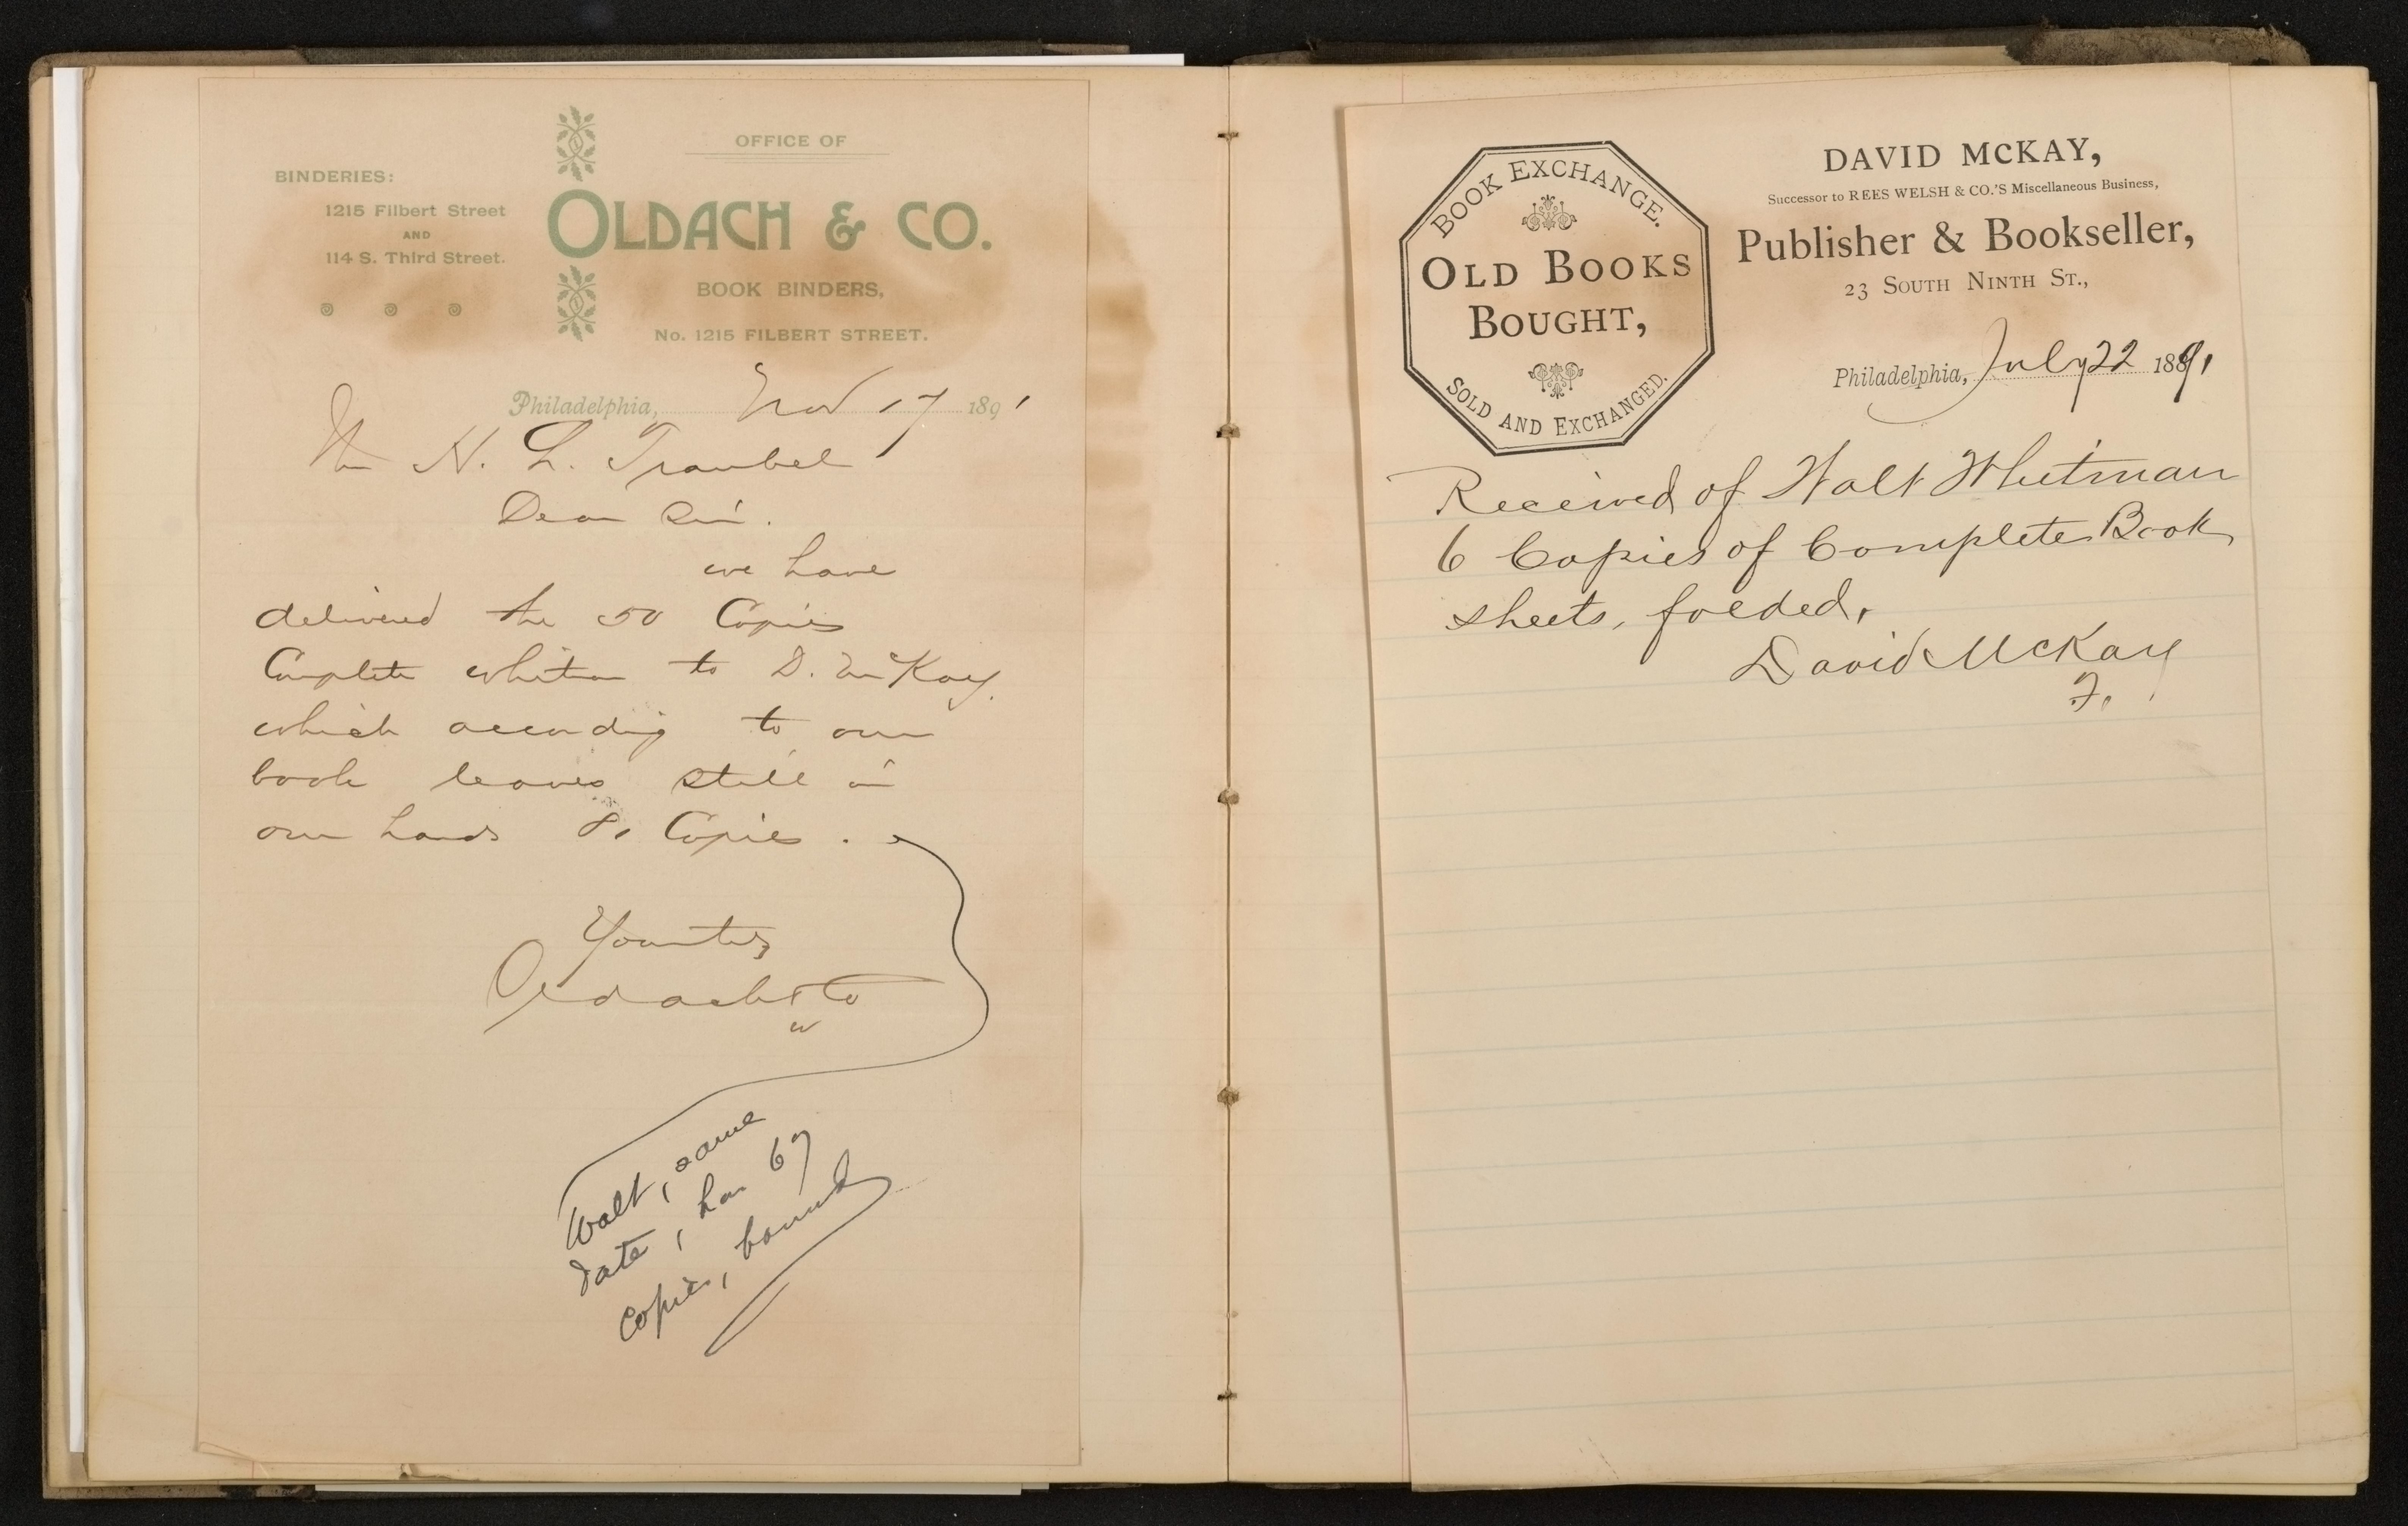 OFFICE OF
BINDERIES:
1215 Filbert Street
AND
114 S. Third Street.
OLDACH & CO.
BOOK BINDERS,
No. 1215 FILBERT STREET.
Philadelphia, Nov 17 1891
Mr H. L. Traubel
Dear Sir.
we have
delivered the 50 Copies
Complete Whitman to D. McKay.
which according to our
book leaves still in
our hands Copies.
Yours try
Oldach & Co
w
Walt, same
date, has 67
copies, bound
BOOK EXCHANGE.
OLD BOOKS
BOUGHT,
SOLD AND EXCHANGED.
DAVID McKAY,
Successor to REES WELSH & CO.'S Miscellaneous Business,
Publisher & Bookseller,
23 SOUTH NINTH ST.,
Philadelphia, July 22 1891
Received of Walt Whitman
6 Copies of Complete Book
sheets, folded.
David McKay
F.